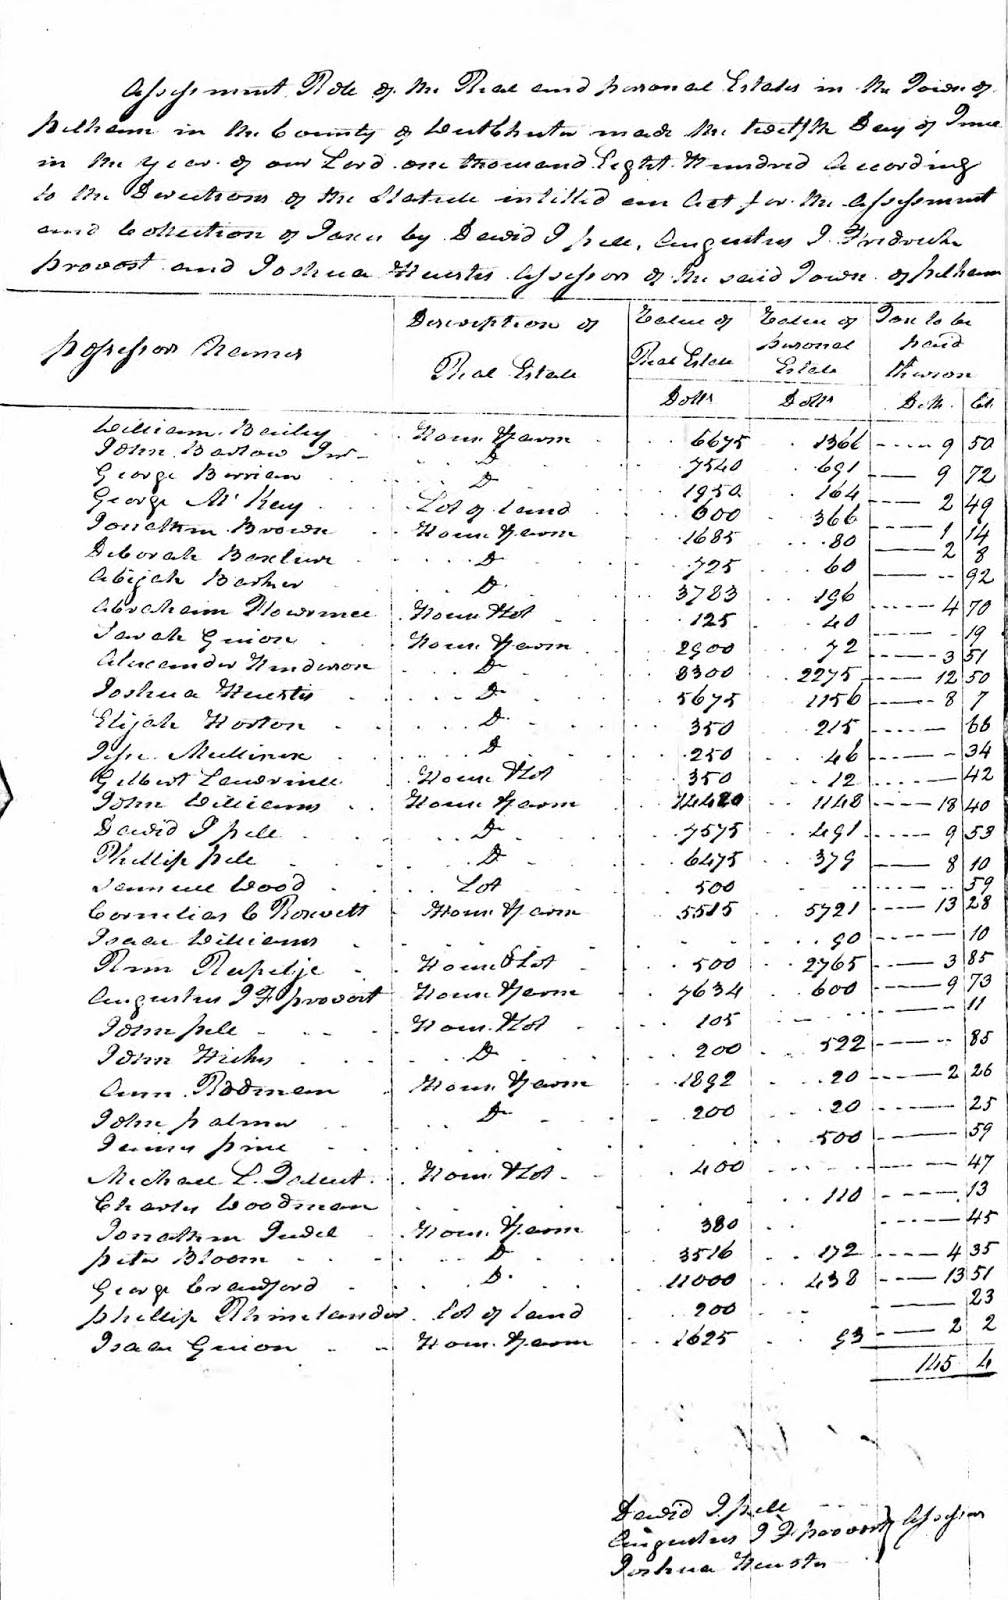 Assessment Role of the Real and personal Estates in the Town of
pelham in the County of WestChester made the twelfth Day of June
in the year of our Lord one thousand Eight Hundred According
to the Directions of the Statute intitled an Act for the Assessment
and Collection of Taxes by David J pell, Augustus J. Fredrick
provost and Joshua Huestis Assessors of the said Town of pelham
possessors Names Description of Real Estate Value of Real Estate Value of personal Estate Tax to be paid thereon
Dolls Dolls Doll. Ct.
William Bailey House & farm 6675 1366 9 50
John Bartow Jur D 7540 691 9 72
George Berrian D 1950 164 2 49
George McKay Lot of land 600 366 1 14
Jonathan Brown House & farm 1685 80 2 8
Deborah D 725 60 92
Abijah Barker D 3783 196 4 70
Abraham House & Lot 125 40 19
Sarah Guion House & farm 2900 72 3 51
Alexander Henderson D 8300 2275 12 50
Joshua Huestis D 5675 1156 8 7
Elijah Horton D 350 215 66
Jesse Mullinex D 250 46 34
Gilbert Lawrence House & Lot 350 12 42
John Williams House & farm 14420 1148 18 40
David J pell D 7575 491 9 53
Phillip pell D 6475 379 8 10
Samuel Wood Lot 500 59
Cornelias C Rosevelt House & farm 5515 5721 13 28
Isaac Williams 90 10
Ram Rapelje House & Lot 500 2765 3 85
Augustus J F provort House & farm 7634 600 9 73
John pell House & Lot 105 11
John Hicks D 200 522 85
Ann Rodman House & farm 1892 20 2 26
John palmer D 200 20 25
James pine 500 59
Michael L. House & Lot 400 47
Charles Woodman 110 13
Jonathan House & farm 380 45
peter Bloom D 3516 172 4 35
George Crawford D. 11000 438 13 51
phillip Rhinelander Lot of land 200 23
Isaac Guion House & farm 1625 93 2 2
145 4
David J. pell
Augustus J F provort } Assessors
Joshua Huestis